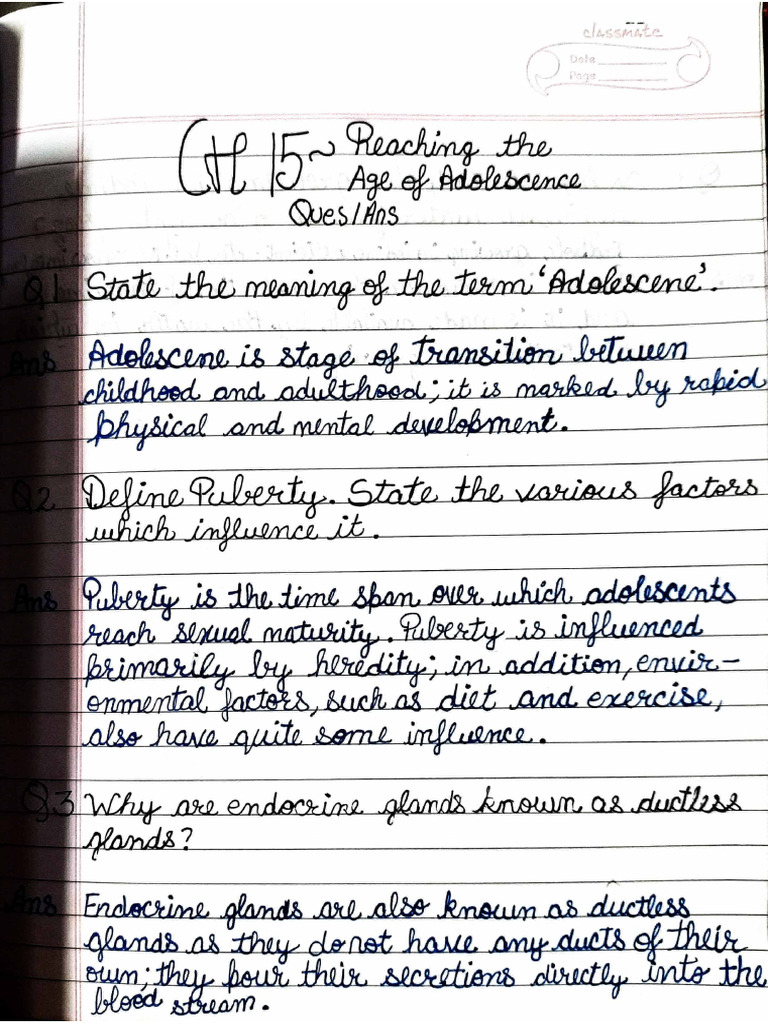 classmate
Date
Page
CH 15~ Reaching the
Age of Adolescence
Ques/Ans
Q1 State the meaning of the term 'Adolescene'.
Ans Adolescene is stage of transition between
childhood and adulthood; it is marked by rapid
physical and mental development.
Q2 Define Puberty. State the various factors
which influence it.
Ans Puberty is the time span over which adolescents
reach sexual maturity. Puberty is influenced
primarily by heredity; in addition, envir-
onmental factors, such as diet and exercise,
also have quite some influence.
Q.3 Why are endocrine glands known as ductless
glands?
Ans Endocrine glands are also known as ductless
glands as they do not have any ducts of their
own; they pour their secretions directly into the
blood stream.